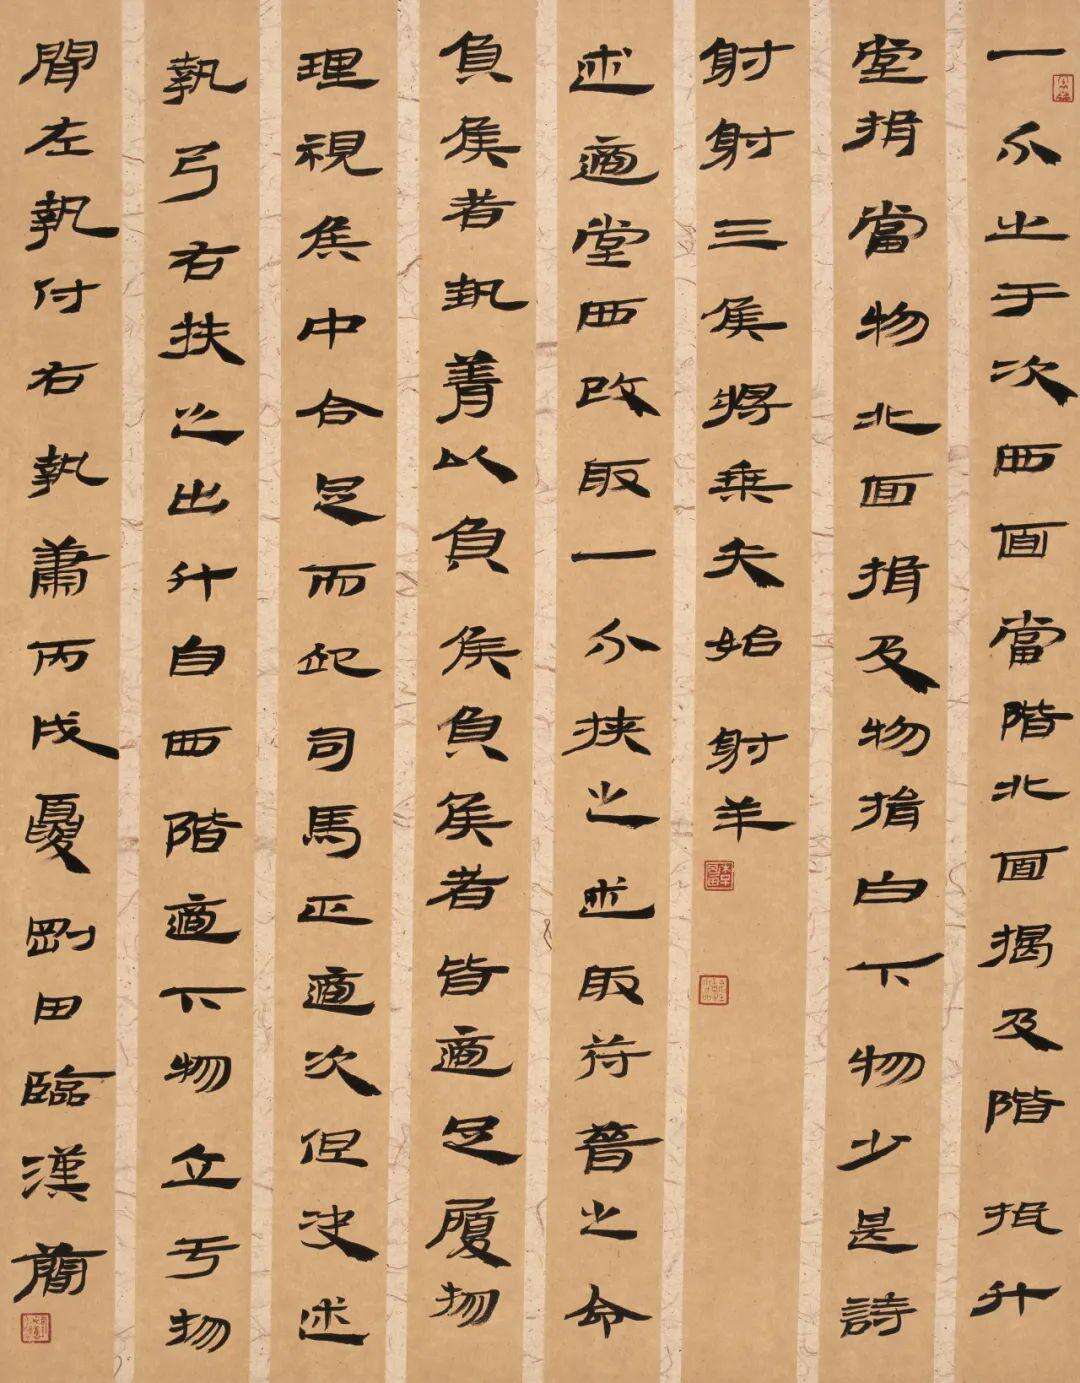 一介之于次西面當階北面揖及階揖升
堂揖當物北面揖及物揖白下物少是詩
射射三侯將乘矢始射羊
述適堂西改取一介挟之述取符晉之命
負侯者執菁以負侯負侯者皆適足履物
理視侯中合足而起司馬正適次但決述
執弓右挟之出升自西階適下物立于物
間左執付右執蕭丙戌夏剛田臨漢簡